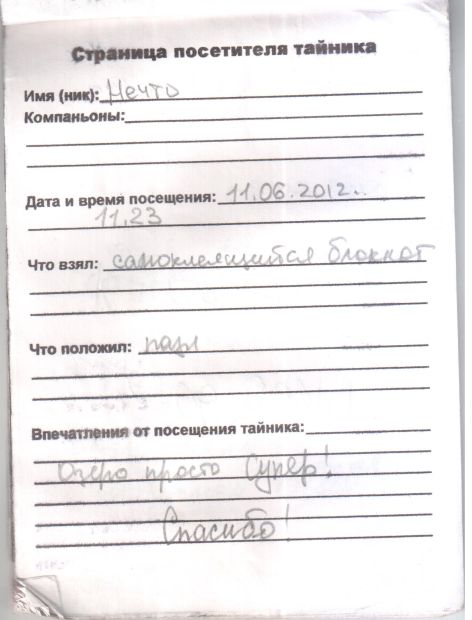 Страница посетителя тайника
Имя (ник): Нечто
Компаньоны:
Дата и время посещения: 11.06.2012.
11.23
Что взял: самоклеящийся блокнот
Что положил: пазл
Впечатления от посещения тайника:
Озеро просто Супер!
Спасибо!